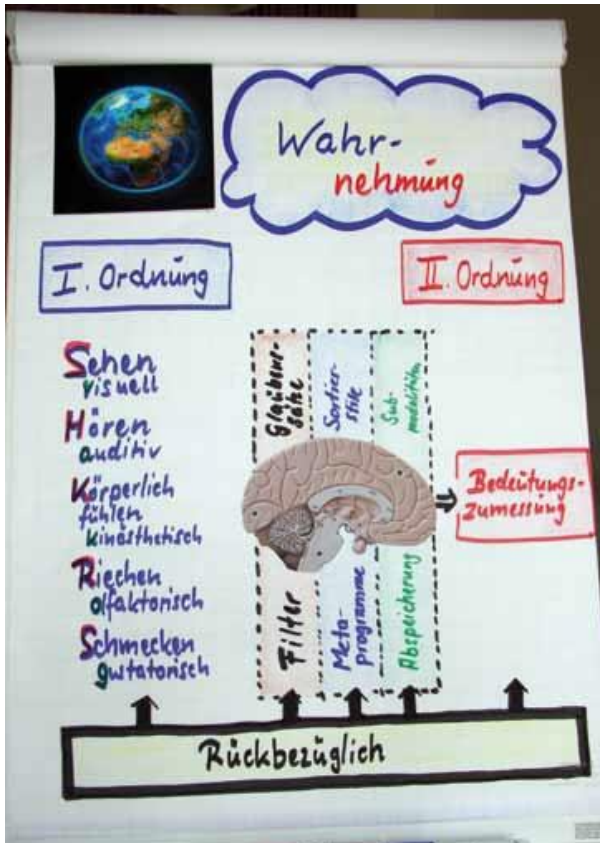 Wahr-
nehmung
I. Ordnung
II. Ordnung
Sehen
visuell
Hören
auditiv
Körperlich
fühlen
kinästhetisch
Riechen
olfaktorisch
Schmecken
gustatorisch
Glaubens-
sätze
Sortier-
stile
Sub-
modalitäten
Filter
Meta-
programme
Abspeicherung
Bedeutungs-
zumessung
Rückbezüglich